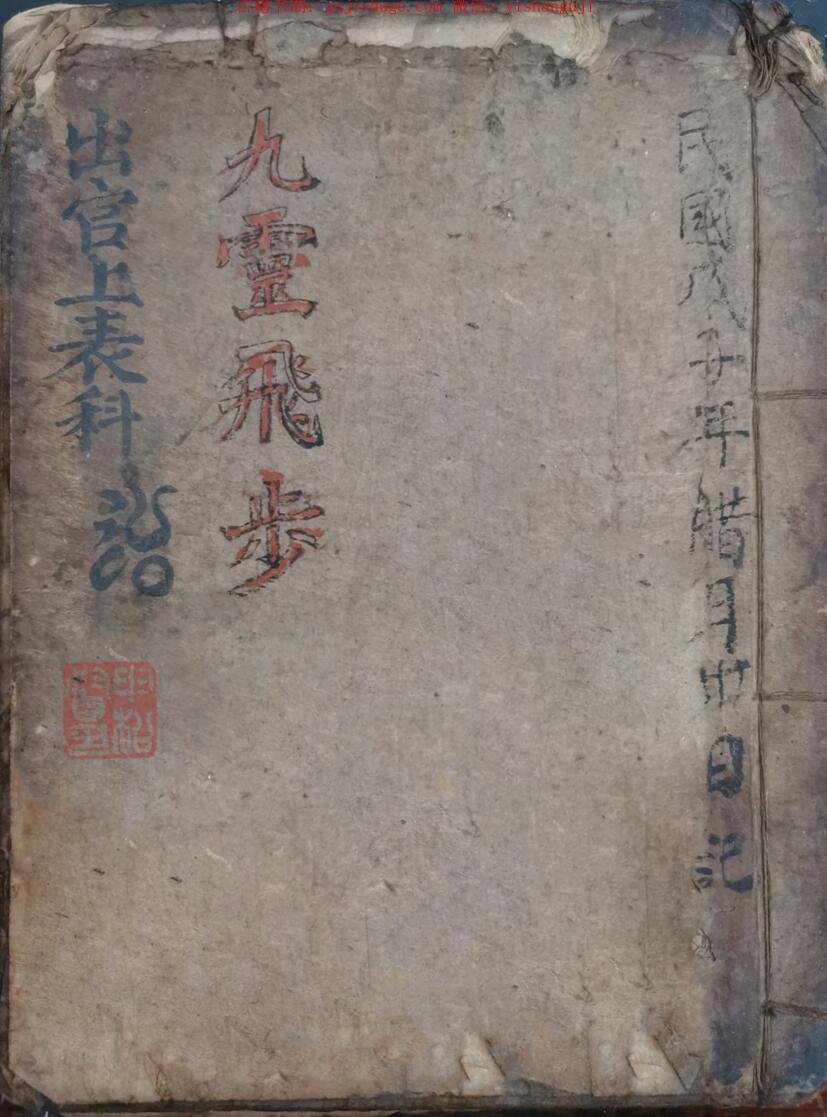 古籍书阁：gujishuge.com 微信：yishanguji
民國戊子年腊月廿日記
九靈飛步
出官上表科